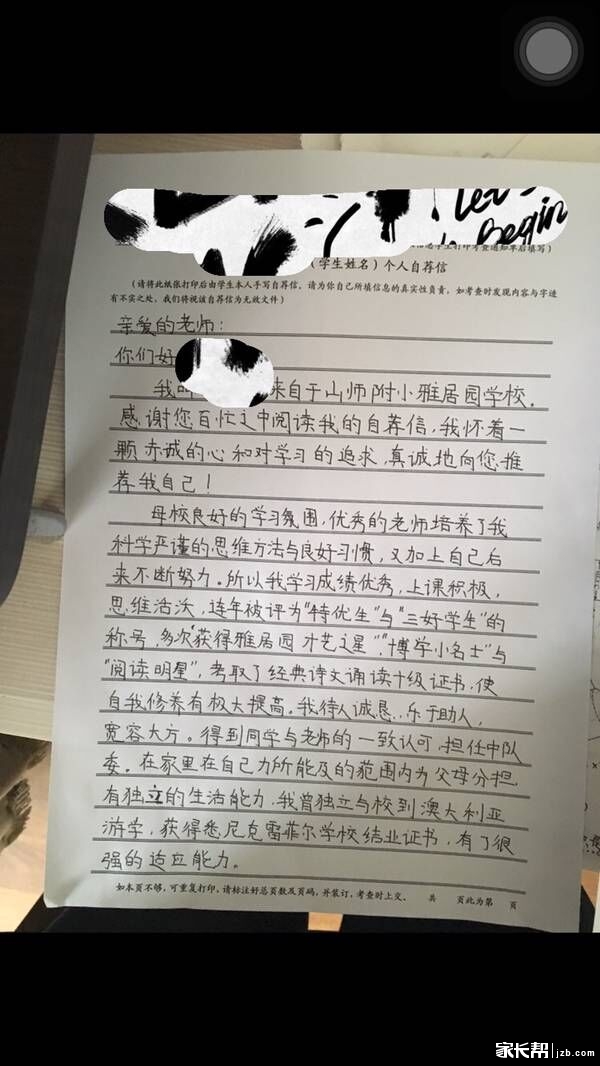 Let's
Begin
（学生姓名）个人自荐信
（请将此纸张打印后由学生本人手写自荐信，请为你自己所填信息的真实性负责，如考查时发现内容与字迹
有不实之处，我们将视该自荐信为无效文件）
亲爱的老师：
你们好
我叫 来自于山师附小雅居园学校。
感谢您百忙之中阅读我的自荐信，我怀着一
颗赤诚的心和对学习的追求，真诚地向您推
荐我自己！
母校良好的学习氛围，优秀的老师培养了我
科学严谨的思维方法与良好习惯，又加上自己后
来不断努力。所以我学习成绩优秀，上课积极，
思维活沃，连年被评为“特优生”与“三好学生”的
称号，多次“获得雅居园才艺之星”“博学小名士”与
“阅读明星”，考取了经典诗文诵读十级证书，使
自我修养有极大提高。我待人诚恳，乐于助人，
宽容大方。得到同学与老师的一致认可，担任中队
委。在家里在自己力所能及的范围内为父母分担，
有独立的生活能力，我曾独立与校到澳大利亚
游学，获得悉尼克雷菲尔学校结业证书，有了很
强的适应能力。
如本页不够，可重复打印，请标注好总页数及页码，并装订，考查时上交。 共 页此为第 页
家长帮 jzb.com